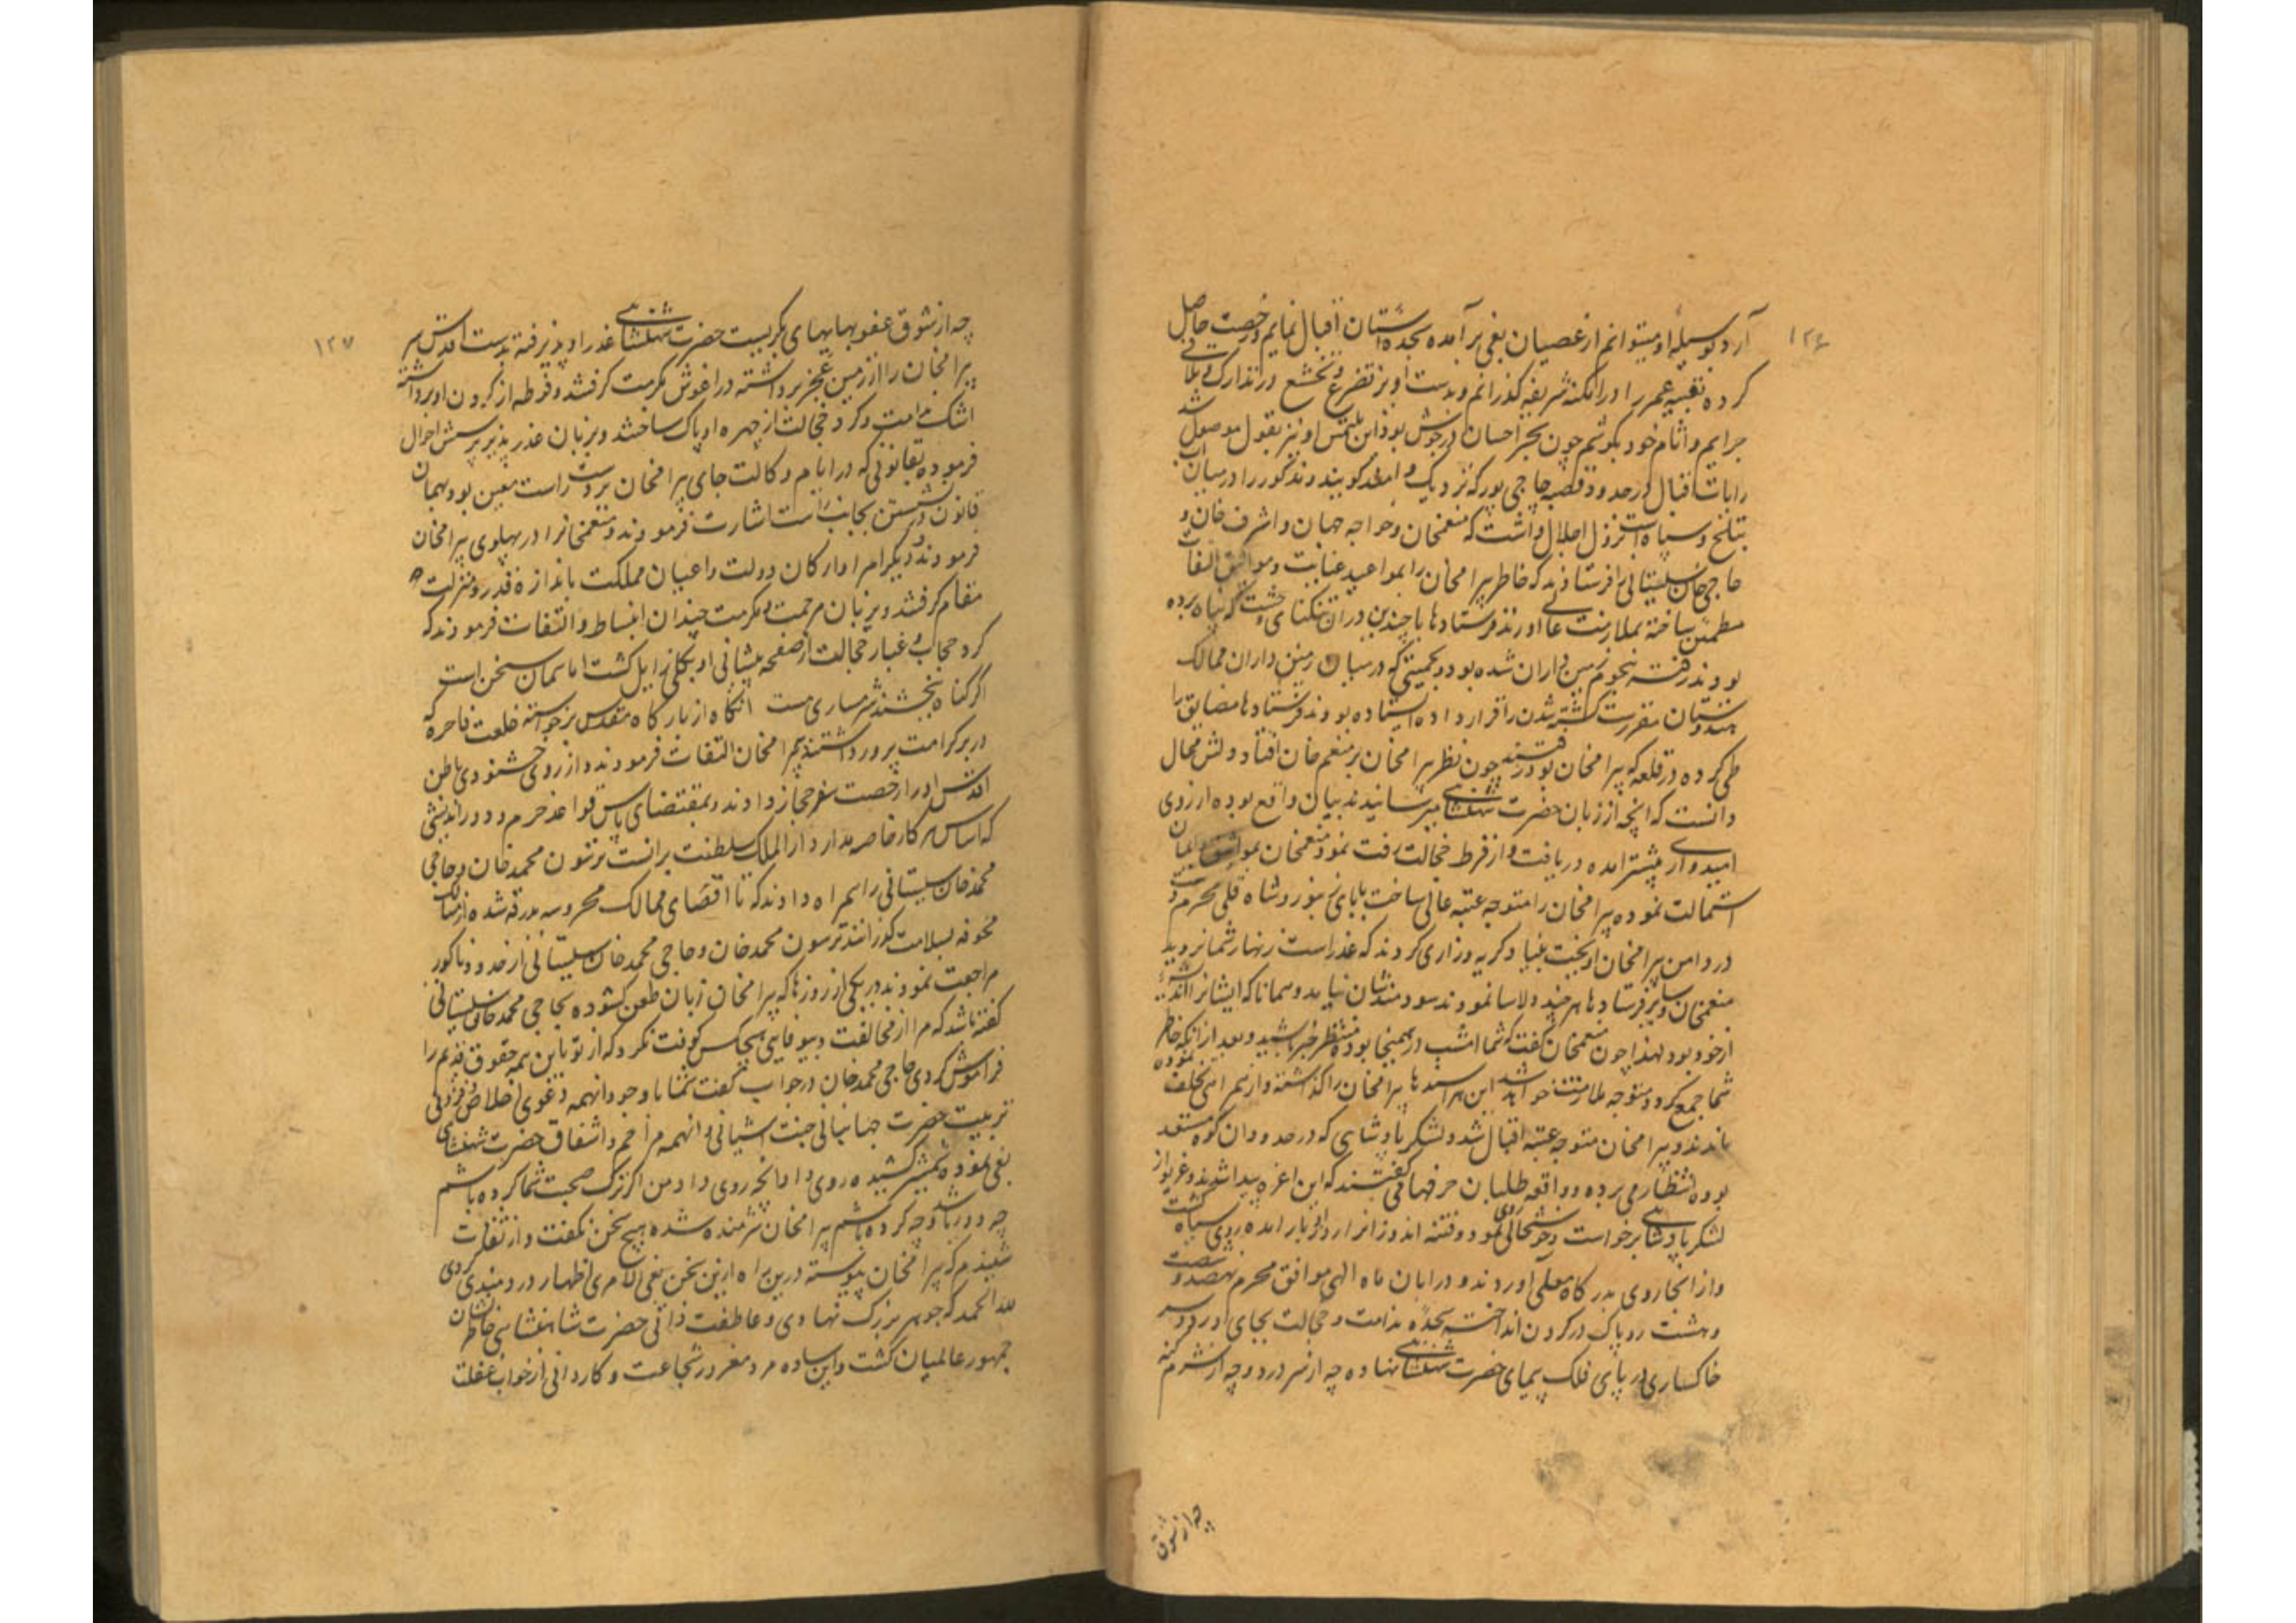 ١٢٦
آرد بوسیله او میتوانم از عصیان بغی برآمده سجده آستان اقبال نمایم و رخصت حاصل
کرده بقیه عمر را در امکنه شریفه گذرانم و بدست آویز تضرع و تخشع در تدارک و تلافی
جرایم و آثام خود بکوشم چون بحر احسان در جوش بود این ملتمس او نیز بقول موصول شد
رایات اقبال در حدود قصبه حاجی پور که نزدیک دامنه کوه بند مذکور را در میان آب
بتلج و سپاه است نزول اجلال داشت که منعمخان و خواجه جهان و اشرف خان و
حاجی خان سیستانی را فرستادند که خاطر بیرامخان را بمواعید عنایت و مواثیق التفات
مطمئن ساخته بملازمت عالی اورند فرستادها با چندین در ان تنکنای وحشت که پناه برده
بودند رفته هجوم زمین داران شده بود و بجمعیتی که در میان زمین داران ممالک
هندوستان مقررست کشته شدن را قرار داده ایستاده بودند فرستادها مضایق را
طی کرده در قلعه که بیرامخان بود رفتند چون نظر بیرامخان بر منعم خان افتاد دولتش مجال
دانست که انچه از زبان حضرت شهنشاهی میرسانیدند بیان واقع بوده از روی
امیدواری پیشتر امده دریافت و از فرط خجالت رقت نمود منعمخان بمواثیق و ایمان
استمالت نموده بیرامخان را متوجه عتبه عالی ساخت بابای زنبور و شاه قلی محرم دست
در دامن بیرامخان اویخت بنیاد کریه و زاری کردند که غدر است زنهار شما نروید
منعمخان و سایر فرستادها هرچند دلاسا نمودند سودمند شان نیامد و همانا که ایشانرا اندیشه
از خود بود لهذا چون منعمخان گفت که شما امشب در همینجا بوده منتظر خبر باشید و بعد از انکه خاطر
شما جمع کردد متوجه ملازمت خواهید شد این هراسیدها بیرامخان را گذاشته و از همراهی تخلف نموده
ماندند و بیرامخان متوجه عتبه اقبال شد و لشکر پادشاهی که در حدود ان کوه مستعد
بوده انتظار می برده و واقعه طلبان حرفها می گفتند که این اعزه پیدا شدند و غریو از
لشکر پادشاهی برخواست و خوشحالی روی نمود و فتنه اندوزان را رازی ببار امده روی سیاه گشت
و از انجا روی بدرگاه معلی آوردند و در ابان ماه الهی موافق محرم نهصد و شصت
و هشت روپاک در کردن انداخته سجده ندامت و خجالت بجای آورد و سر
خاکساری در پای فلک پیمای حضرت شهنشاهی نهاده چه از سر درد و چه از شرم گنه
چه از شوق
١٢٧
چه از شوق عفو بهایهای بکریست حضرت شهنشاهی عذر او پذیرفته بدست اقدس سر
بیرامخان را از زمین عجز برداشته در اغوش مکرمت کرفتند و فوطه از کردن او برداشته
اشک ندامت و کرد خجالت از چهره او پاک ساختند و بزبان عذر پذیر پرسش احوال
فرموده بقانونی که در ایام وکالت جای بیرامخان بر دست راست معین بود بهمان
قانون نشستن بجانب راست اشارت فرمودند و منعمخانرا در پهلوی بیرامخان
فرمودند و دیکر امرا و ارکان دولت و اعیان مملکت باندازه قدر و منزلت
مقام کرفتند و بزبان مرحمت و مکرمت چندان انبساط و التفات فرمودند که
کرد حجاب و غبار خجالت از صفحه پیشانی او بکلی زایل کشت اما همان سخن است
اکر کناه ببخشند شرمساری هست انکاه از بارکاه مقدس برخواسته خلعت فاخره که
در بر کرامت پرور داشتند ببیرامخان التفات فرمودند و از روی خشنودی باطن
اقدس او را رخصت سفر حجاز دادند و بمقتضای پاس قواعد حزم و دوراندیشی
که اساس هر کار خاصه مدار دار الملک سلطنت برانست ترسون محمد خان و حاجی
محمد خان سیستانی را همراه دادند که تا اقصای ممالک محروسه بدرقه شده از مسالک
مخوفه بسلامت گذرانند ترسون محمد خان و حاجی محمد خان سیستانی از حدود ناکور
مراجعت نمودند در یکی از روزها که بیرامخان زبان طعن کشوده بحاجی محمد خان سیستانی
گفته باشد که مرا از مخالفت و بیوفایی هیچکس کوفت نکرد که از تو باین همه حقوق قدیم را
فراموش کردی حاجی محمد خان در جواب گفت شما با وجود انهمه دعوی اخلاص و فزونی
تربیت حضرت جهانبانی جنت آشیانی و انهمه مراحم و اشفاق حضرت شهنشاهی
بغی نموده شمشیر کشیده روی داد انچه روی داد من اکر ترک صحبت شما کرده باشم
چه دور باشد و چه کرده باشم بیرامخان شرمنده شده هیچ سخن نگفت و از ثقات
شنیدم که بیرامخان پیوسته درین راه ازین سخن نفس الامری اظهار دردمندی کردی
لله الحمد که جوهر بزرک نهادی و عاطفت ذاتی حضرت شاهنشاهی خاطرنشان
جمهور عالمیان کشت و این ساده مرد مغرور شجاعت و کاردانی از خواب غفلت